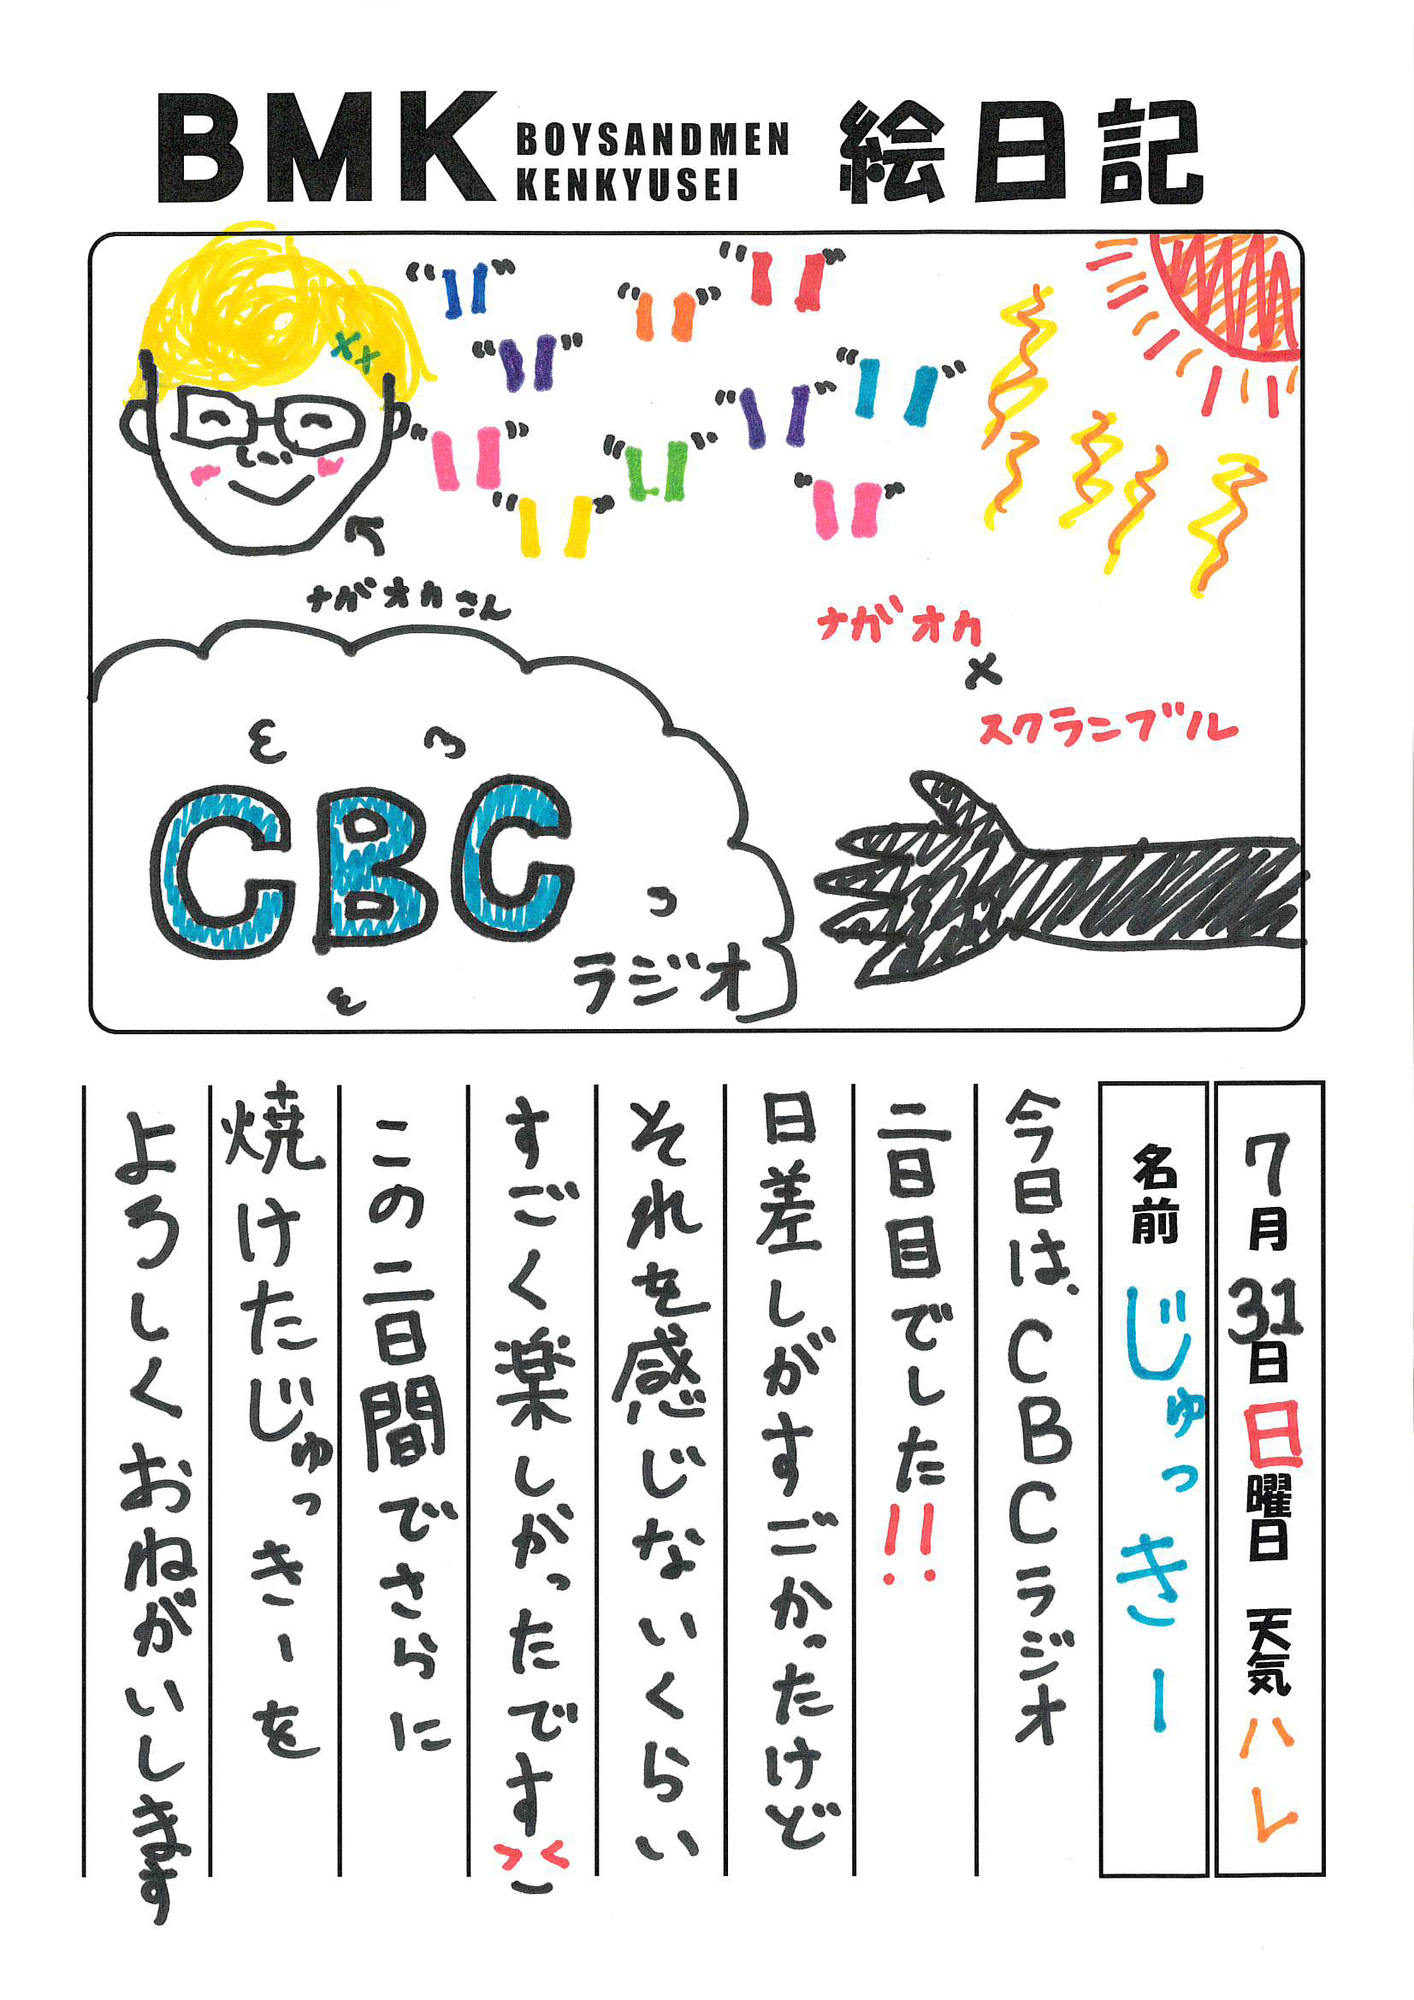 BMK BOYSANDMEN KENKYUSEI 絵日記
ナガオカさん
ナガオカ
×
スクランブル
CBC
ラジオ
7月31日日曜日 天気ハレ
名前 じゅっきー
今日は、CBCラジオ
二日目でした!!
日差しがすごかったけど
それを感じないくらい
すごく楽しかったです
この二日間でさらに
焼けたじゅっきーを
よろしくおねがいします